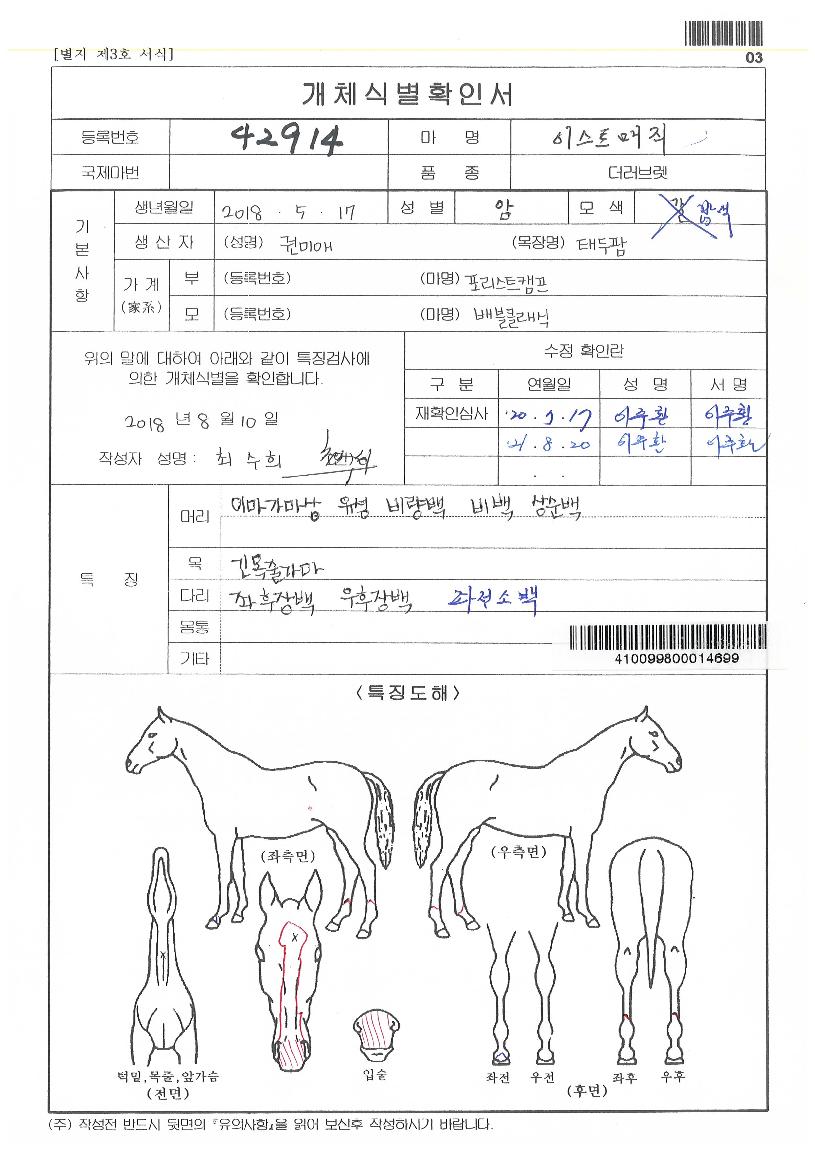 [별지 제3호 서식]
03
개체식별확인서
등록번호 42914 마 명 이스트매직
국제마번 품 종 더러브렛
기본사항
생년월일 2018 . 5 . 17 성 별 암 모 색 갈 밤색
생 산 자 (성명) 권미애 (목장명) 태두팜
가 계 (家系) 부 (등록번호) (마명) 포리스트캠프
모 (등록번호) (마명) 배블클래식
위의 말에 대하여 아래와 같이 특징검사에
의한 개체식별을 확인합니다.
2018 년 8 월 10 일
작성자 성명 : 최 수희
수정 확인란
구 분 연월일 성 명 서 명
재확인심사 '20 . 9 . 17 이주환 이주환
'21 . 8 . 20 이주환 이주환
. .
특 징
머리 이마가마상 유성 비량백 비백 상순백
목 긴목줄가마
다리 좌후장백 우후장백 좌전소백
몸통
기타
410099800014699
<특징도해>
(좌측면) (우측면)
턱밑,목줄,앞가슴
(전면)
입술
좌전 우전 좌후 우후
(후면)
(주) 작성전 반드시 뒷면의 『유의사항』을 읽어 보신후 작성하시기 바랍니다.